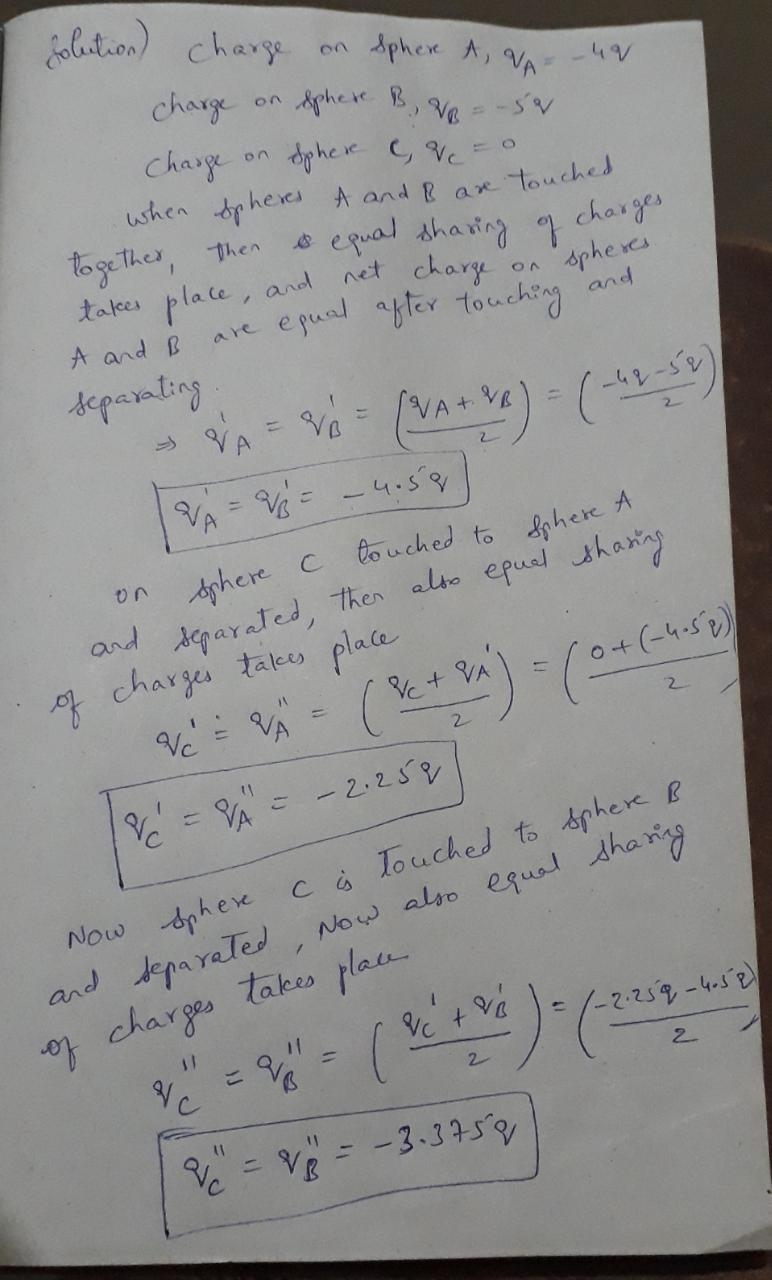 Solution) Charge on Sphere A, q_A = -4q
Charge on Sphere B, q_B = -5q
Charge on Sphere C, q_C = 0
when Spheres A and B are touched
together, then equal sharing of charges
takes place, and net charge on spheres
A and B are equal after touching and
separating.
⇒ q'_A = q'_B = (q_A + q_B / 2) = (-4q - 5q / 2)
q'_A = q'_B = -4.5q
on sphere C touched to sphere A
and separated, then also equal sharing
of charges takes place
q_C' = q_A'' = (q_C + q_A' / 2) = (0 + (-4.5q) / 2)
q_C' = q_A'' = -2.25q
Now sphere C is Touched to sphere B
and separated, Now also equal sharing
of charges takes place
q_C'' = q_B'' = (q_C' + q_B' / 2) = (-2.25q - 4.5q / 2)
q_C'' = q_B'' = -3.375q